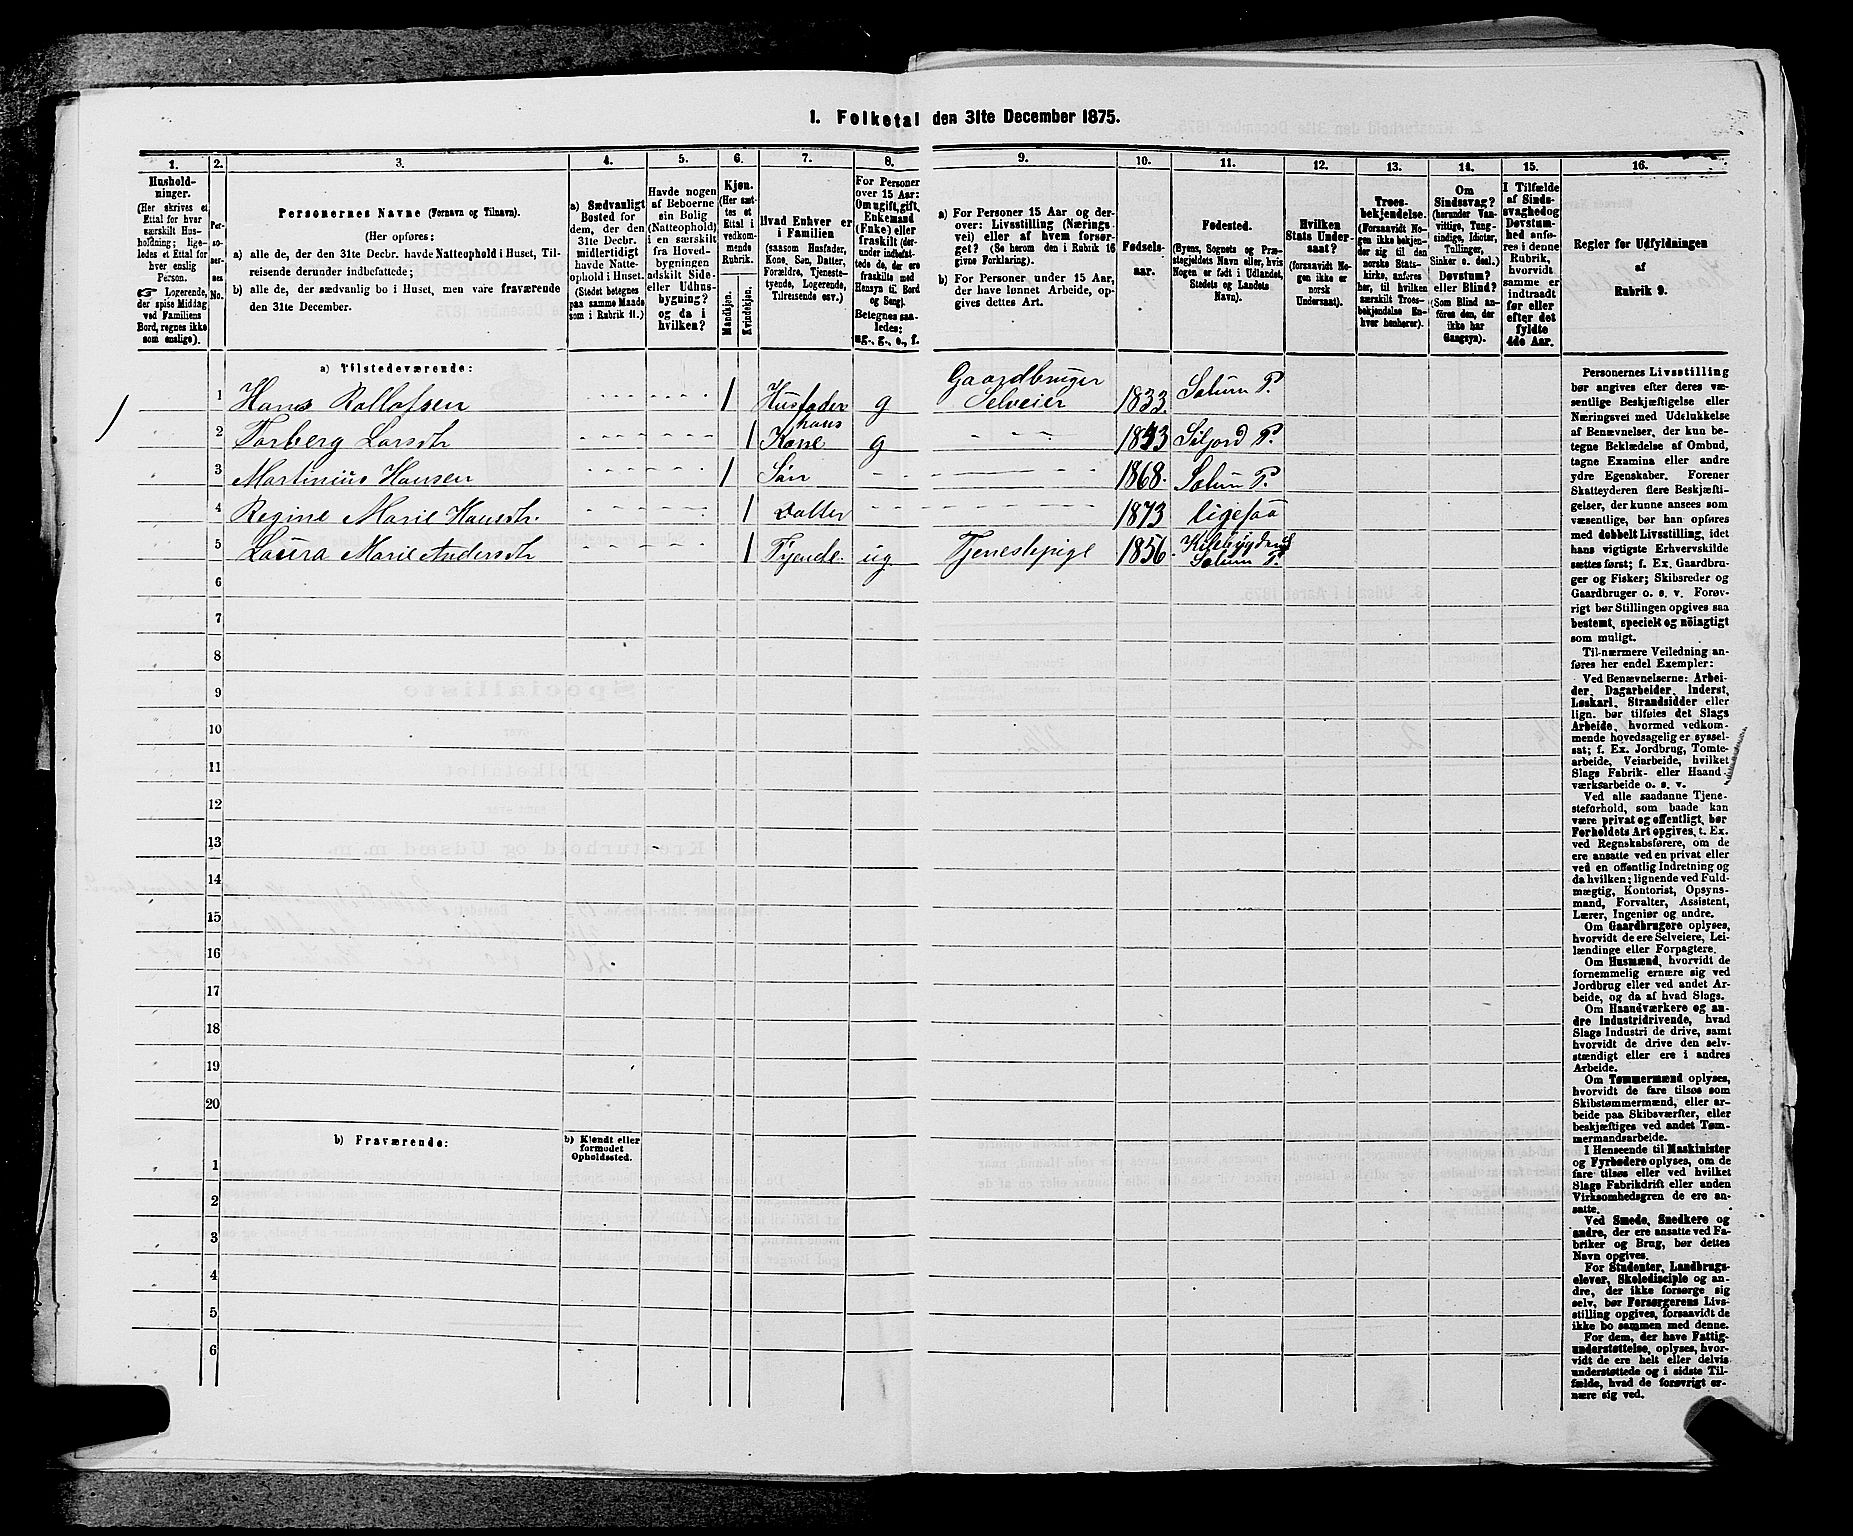 1. Folketal den 31te December 1875.
1. 2. 3. 4. 5. 6. 7. 8. 9. 10. 11. 12. 13. 14. 15. 16.
Hushold-
ninger.
(Her skrives et
Ettal for hver
særskilt Hus-
holdning; lige-
ledes et Ettal for
hver enslig
Person.
☞ Logerende,
der spise Middag
ved Familiens
Bord, regnes ikke
som enslige).
Per-
so-
ner-
nes
No.
Personernes Navne (Fornavn og Tilnavn).
(Her opføres:
a) alle de, der den 31te Decbr. havde Natteophold i Huset, Til-
reisende derunder indbefattede;
b) alle de, der sædvanlig bo i Huset, men vare fraværende
den 31te December.
a) Sædvanligt
Bosted for
dem, der den
31te Decbr.
midlertidigt
havde Natte-
ophold i Huset.
(Stedet betegnes
paa samme Maade
som i Rubrik 11.)
Havde nogen
af Beboerne
sin Bolig
(Natteophold)
i en særskilt
fra Hoved-
bygningen
adskilt Side-
eller Udhus-
bygning?
og da i
hvilken?
Kjøn.
(Her sæt-
tes et
Ettal i
vedkom-
mende
Rubrik.
Mandkjøn.
Kvindekjøn.
Hvad Enhver er
i Familien
(saasom Husfader,
Kone, Søn, Datter,
Forældre, Tjeneste-
tyende, Logerende,
Tilreisende osv.)
For Personer
over 15 Aar:
Om ugift, gift,
Enkemand
(Enke) eller
fraskilt (der-
under indbefat-
tede de, der ere
fraskilte med
Hensyn til Bord
og Seng).
Betegnes saa-
ledes:
ug., g., e., f.
a) For Personer 15 Aar og der-
over: Livsstilling (Nærings-
vei) eller af hvem forsør-
get (Se herom den i Rubrik 16
givne Forklaring).
b) For Personer under 15 Aar,
der have lønnet Arbeide, op-
gives dettes Art.
Fødsels-
aar.
Fødested.
(Byens, Sognets og Præ-
stegjeldets Navn eller, hvis
Nogen er født i Udlandet,
Stedets og Landets
Navn).
Hvilken
Stats Under-
saat?
(forsaavidt No-
gen ikke er
norsk
Undersaat).
Troes-
bekjendelse.
(Forsaavidt No-
gen ikke bekjen-
der sig til den
norske Stats-
kirke, anføres
her, til hvilken
særskilt Troes-
bekjendelse En-
hver henhører).
Om
Sindssvag?
(herunder Van-
vittige, Tung-
sindige, Idioter,
Tullinger,
Sinker o. desl.)
Døvstum?
eller Blind?
(Som Blind an-
føres den, der
ikke har
Gangsyn).
I Tilfælde
af Sinds-
svaghed og
Døvstum-
hed anfø-
res i denne
Rubrik,
hvorvidt
samme er
indtraadt
før eller
efter det
fyldte
4de Aar.
Regler for Udfyldningen
af
Rubrik 9.
a) Tilstedeværende:
1 Hans Rollofsen 1 Husfader g Gaardbruger Selveier 1833. Solum P.
2 Torberg Larsdtr 1 hans Kone g 1833 Siljord P.
3 Martinius Hansen 1 Søn 1868. Solum P.
4 Regine Marie Hansdtr. 1 Datter 1873 ligesaa
5 Laura Marie Andersdtr 1 Tyende ug Tjenestepige 1856. Kilebygden Solum P.
6
7
8
9
10
11
12
13
14
15
16
17
18
19
20
b) Fraværende:
b) Kjendt eller
formodet
Opholdssted.
1
2
3
4
5
6
Personernes Livsstilling
bør angives efter deres væ-
sentlige Beskjæftigelse eller
Næringsvei med Udelukkelse
af Benævnelser, der kun be-
tegne Beklædelse af Ombud,
tagne Examina eller andre
ydre Egenskaber. Forener
Skatteyderen flere Beskjæfti-
gelser, der kunne ansees som
væsentlige, bør han opføres
med dobbelt Livsstilling, idet
hans vigtigste Erhvervskilde
sættes først; f. Ex. Gaardbru-
ger og Fisker; Skibsreder og
Gaardbruger o. s. v. Forøv-
rigt bør Stillingen opgives saa
bestemt, specielt og nöiagtigt
som muligt.
Til nærmere Veiledning an-
føres her endel Exempler:
Ved Benævnelserne: Arbei-
der, Dagarbeider, Inderst,
Løskarl, Strandsidder eller
lign. bør tilføies det Slags
Arbeide, hvormed vedkom-
mende hovedsagelig er syssel-
sat; f. Ex. Jordbrug, Tomte-
arbeide, Veiarbeide, hvilket
Slags Fabrik- eller Haand-
værksarbeide o. s. v.
Ved alle saadanne Tjene-
steforhold, som baade kan
være privat og offentligt, bør
Forholdets Art opgives, t. Ex.
ved Regnskabsførere, om de
ere ansatte ved en privat eller
ved en offentlig Indretning og
da hvilken; lignende ved Fuld-
mægtig, Kontorist, Opsyns-
mand, Forvalter, Assistent,
Lærer, Ingeniør og andre.
Om Gaardbrugere oplyses,
hvorvidt de ere Selveiere, Lei-
lændinge eller Forpagtere.
Om Husmænd, hvorvidt de
fornemmelig ernære sig ved
Jordbrug eller ved andet Ar-
beide, og da af hvad Slags.
Om Haandværkere og an-
dre Industridrivende, hvad
Slags Industri de drive, samt
hvorvidt de drive den selv-
stændigt eller ere i andres
Arbeide.
Om Tømmermænd oplyses,
hvorvidt de fare tilsøs som
Skibstømmermænd, eller ar-
beide paa Skibsværfter, eller
beskjæftiges ved andet Tøm-
mermandsarbeide.
I Henseende til Maskinister
og Fyrbødere oplyses, om de
fare tilsøs eller ved hvilket
Slags Fabrikdrift eller anden
Virksomhedsgren de ere an-
satte.
Ved Smede, Snedkere og
andre, der ere ansatte ved Fa-
briker og Brug, bør dettes
Navn opgives.
For Studenter, Landbrugs-
elever, Skoledisciple og an-
dre, der ikke forsørge sig
selv, bør Forsørgerens Livs-
stilling opgives, forsaavidt de
ikke bo sammen med denne.
For dem, der have Fattig-
understøttelse, oplyses, hvor-
vidt de ere helt eller delvis
understøttede og i sidste Til-
fælde, hvad de forøvrigt er-
nære sig ved.